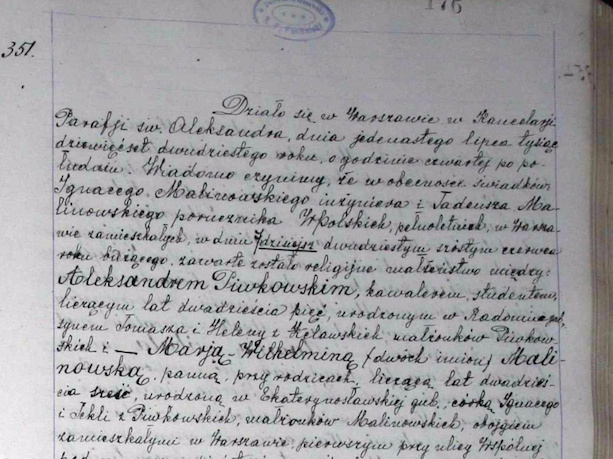 176
351.
Działo się w Warszawie w Kancelarji
Parafji św. Aleksandra, dnia jedenastego lipca tysiąc
dziewięćset dwudziestego roku, o godzinie czwartej po po-
łudniu. Wiadomo czynimy, że w obecności świadków
Ignacego Malinowskiego inżyniera i Tadeusza Ma-
linowskiego porucznika W.Polskich, pełnoletnich, w Warsza-
wie zamieszkałych, w dniu dwudziestym szóstym czerwca
roku bieżącego, zawarte zostało religijne małżeństwo między:
Aleksandrem Piwkowskim, kawalerem, studentem,
liczącym lat dwadzieścia pięć, urodzonym w Radomiu
synem Tomasza i Heleny z małżonków Piwkow-
skich i — Marją-Wilhelminą (dwóch imion) Mali-
nowską, panną, przy rodzicach, liczącą lat dwadzieś-
cia sześć, urodzoną w Ekaterynosławskiej gub., córką Ignacego
i Tekli z Piwkowskich, małżonków Malinowskich, obojgiem
zamieszkałymi w Warszawie, pierwszym przy ulicy Wspólnej